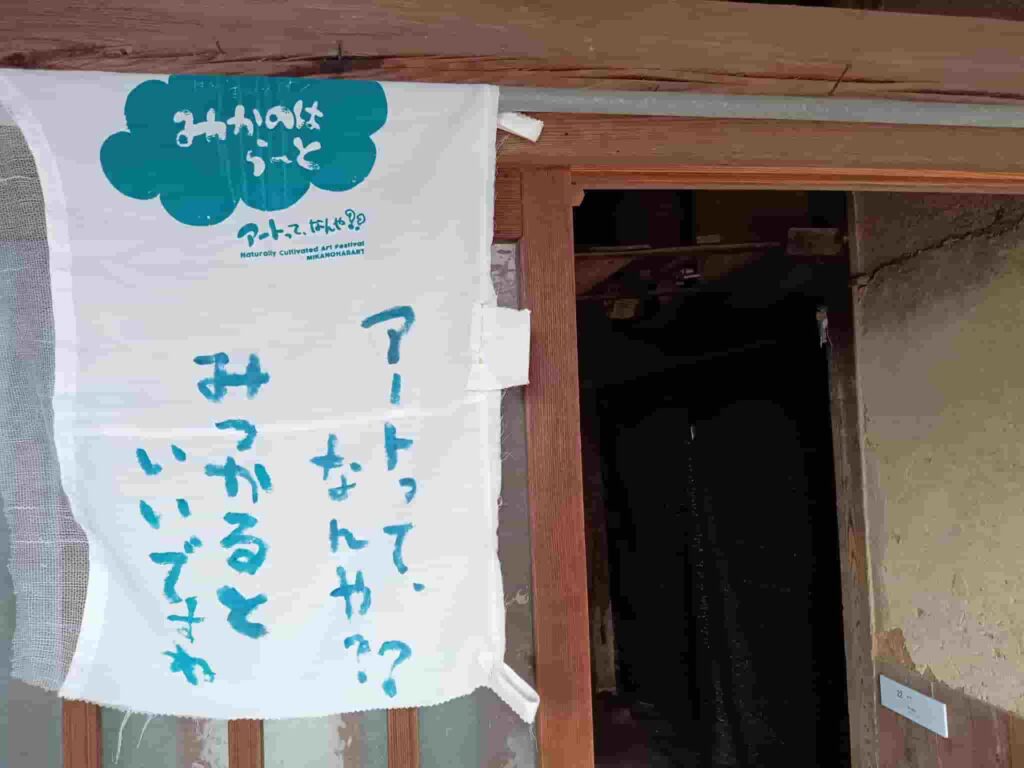 みかのは
らーと
アートって、なんや??
Naturally Cultivated Art Festival
MIKANOHARART
アートって、
なんや??
みつかると
いいですね
22